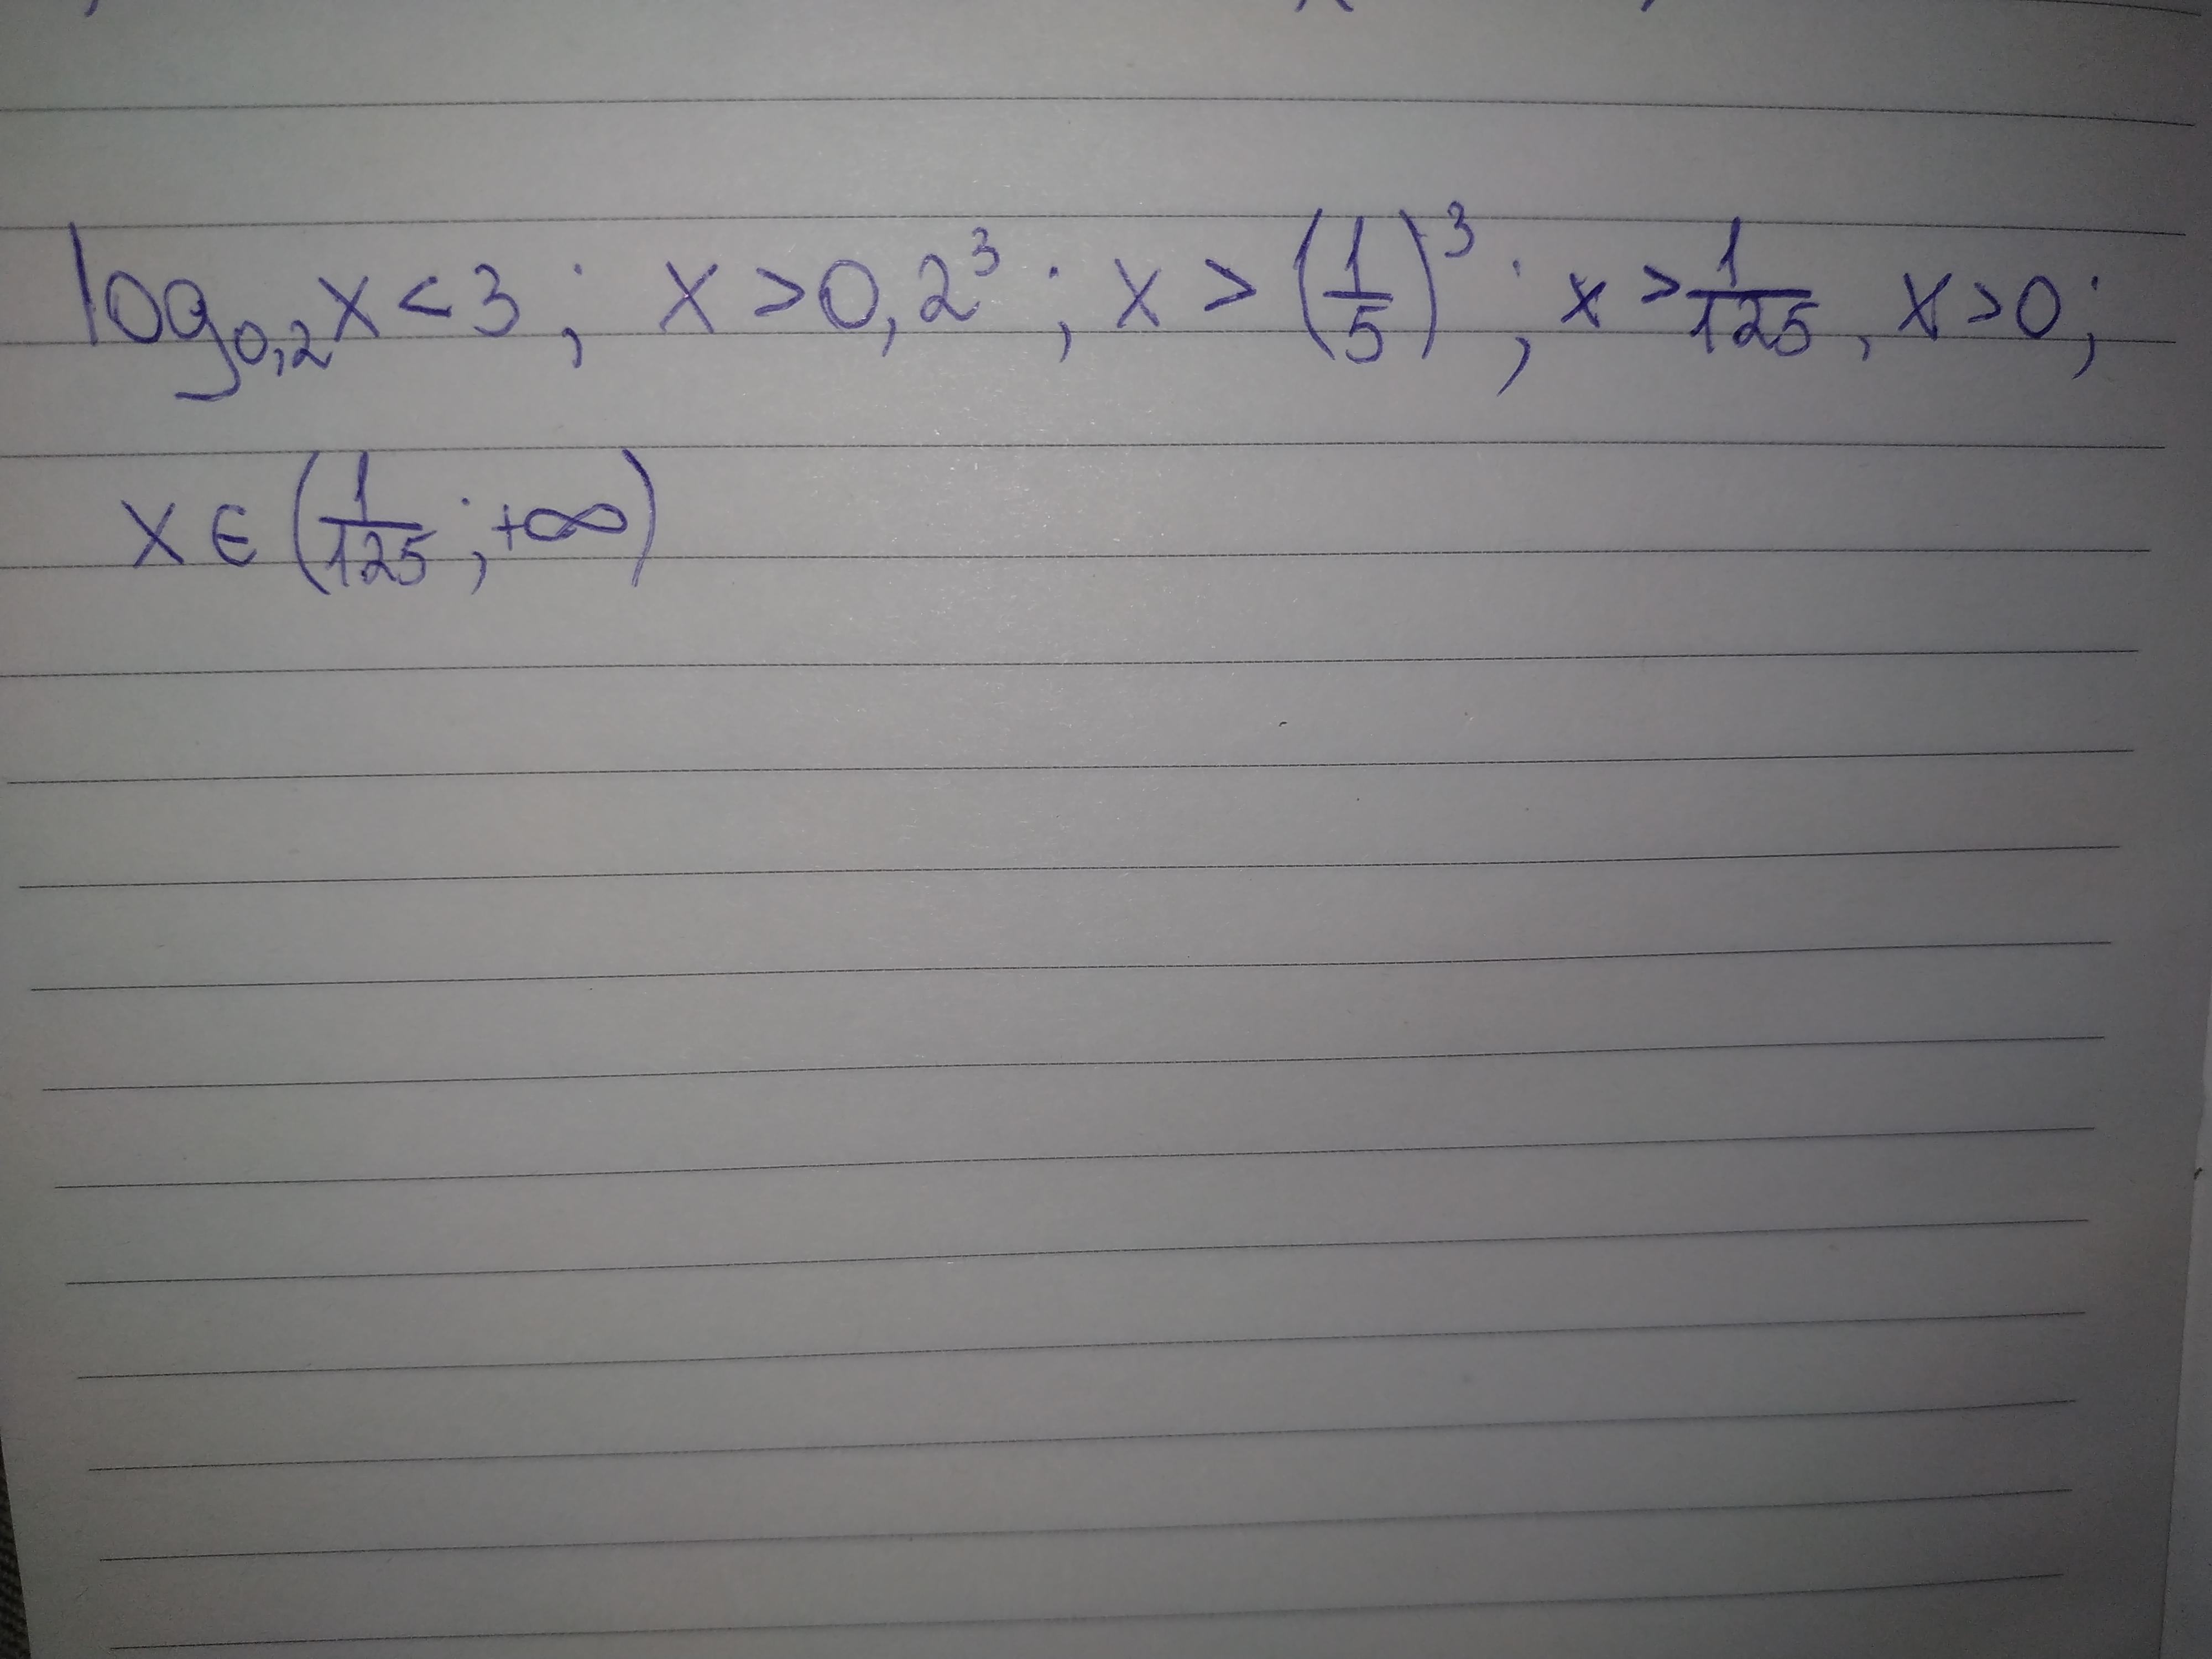 log₀,₂x < 3; x > 0,2³; x > (1/5)³; x > 1/125, x > 0;
x ∈ (1/125; +∞)